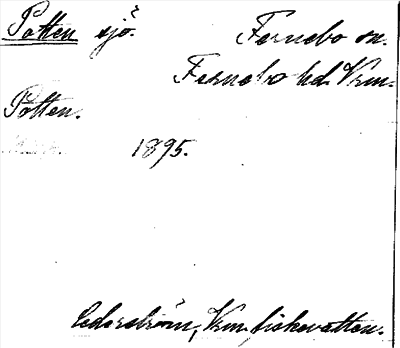 Potten sjö. Fernebo sn.
Fernebo hd. Vrm.
Potten.
1895.
Cederström, Vrm. fiskevatten.